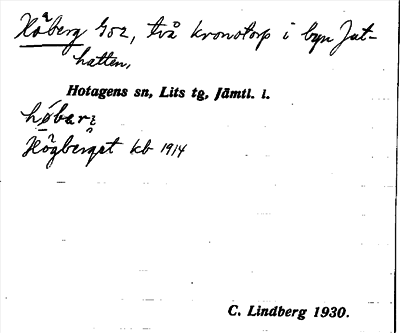 Höberg 502, två kronotorp i byn Jut-
hatten,
Hotagens sn, Lits tg, Jämtl. l.
Högberget kb 1914
C. Lindberg 1930.